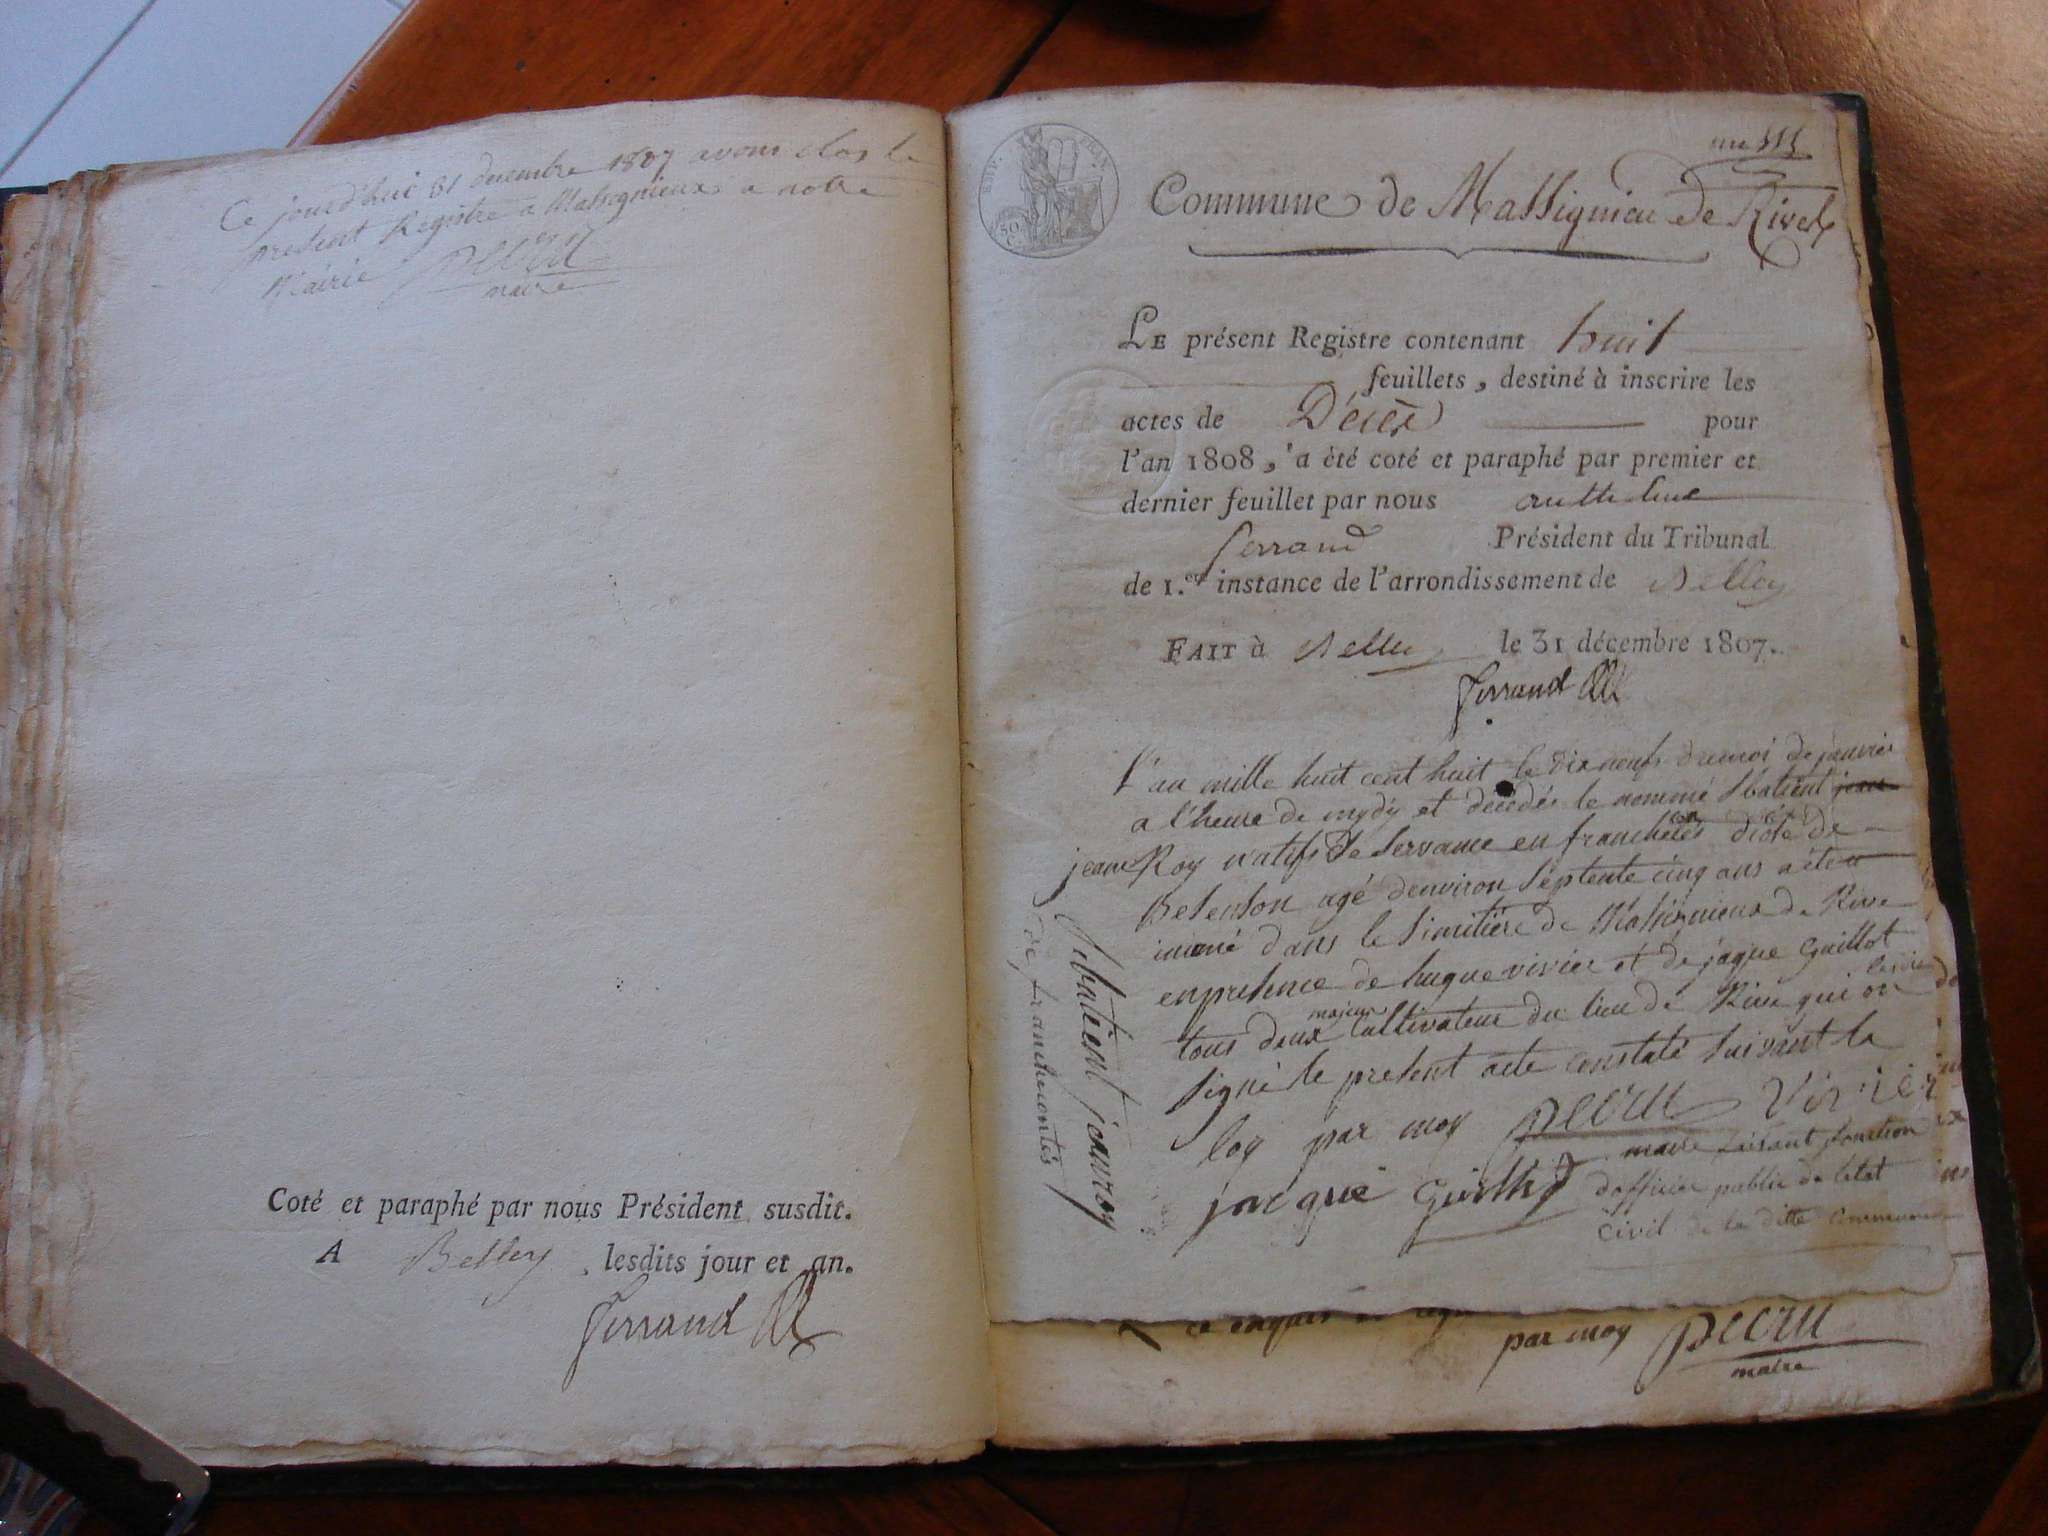 Ce jourd'hui 31 decembre 1807 avons clos le
present Registre a Massignieux a notre
Mairie Decru
maire
Coté et paraphé par nous Président susdit.
A Belley lesdits jour et an.
Ferrand
EMP. FRAN.
50 C.
Commune de Massignieu de Rives
LE présent Registre contenant huit
feuillets, destiné à inscrire les
actes de Décès pour
l'an 1808, a été coté et paraphé par premier et
dernier feuillet par nous anthelme
ferrand Président du Tribunal
de 1.er instance de l'arrondissement de Belley
FAIT à Belley le 31 décembre 1807.
Ferrand
L'an mille huit cent huit le dix neuf du moi de janvier
a l'heure de mydy et décédés le nommé Sbatient jean
jean Roy natifs de Servance en franche diocè de
Besenson agé denviron septente cinq ans a été
inumé dans le simitière de Massignieux de Rive
en presence de hugue vivier et de jaque Guillot
tous deux majeur cultivateur du lieu de Rive qui on
signé le present acte constaté suivant la
loy par moy Decru Vivier
maire faisant fonction
jacque
dofficier public de letat
civil de la ditte commune
Sebatient jeanroy
de franchemontés
par moy Decru
maire